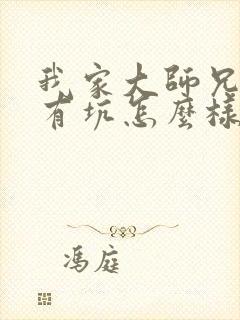 我家大師兄
有坑怎麼樣
馮庭